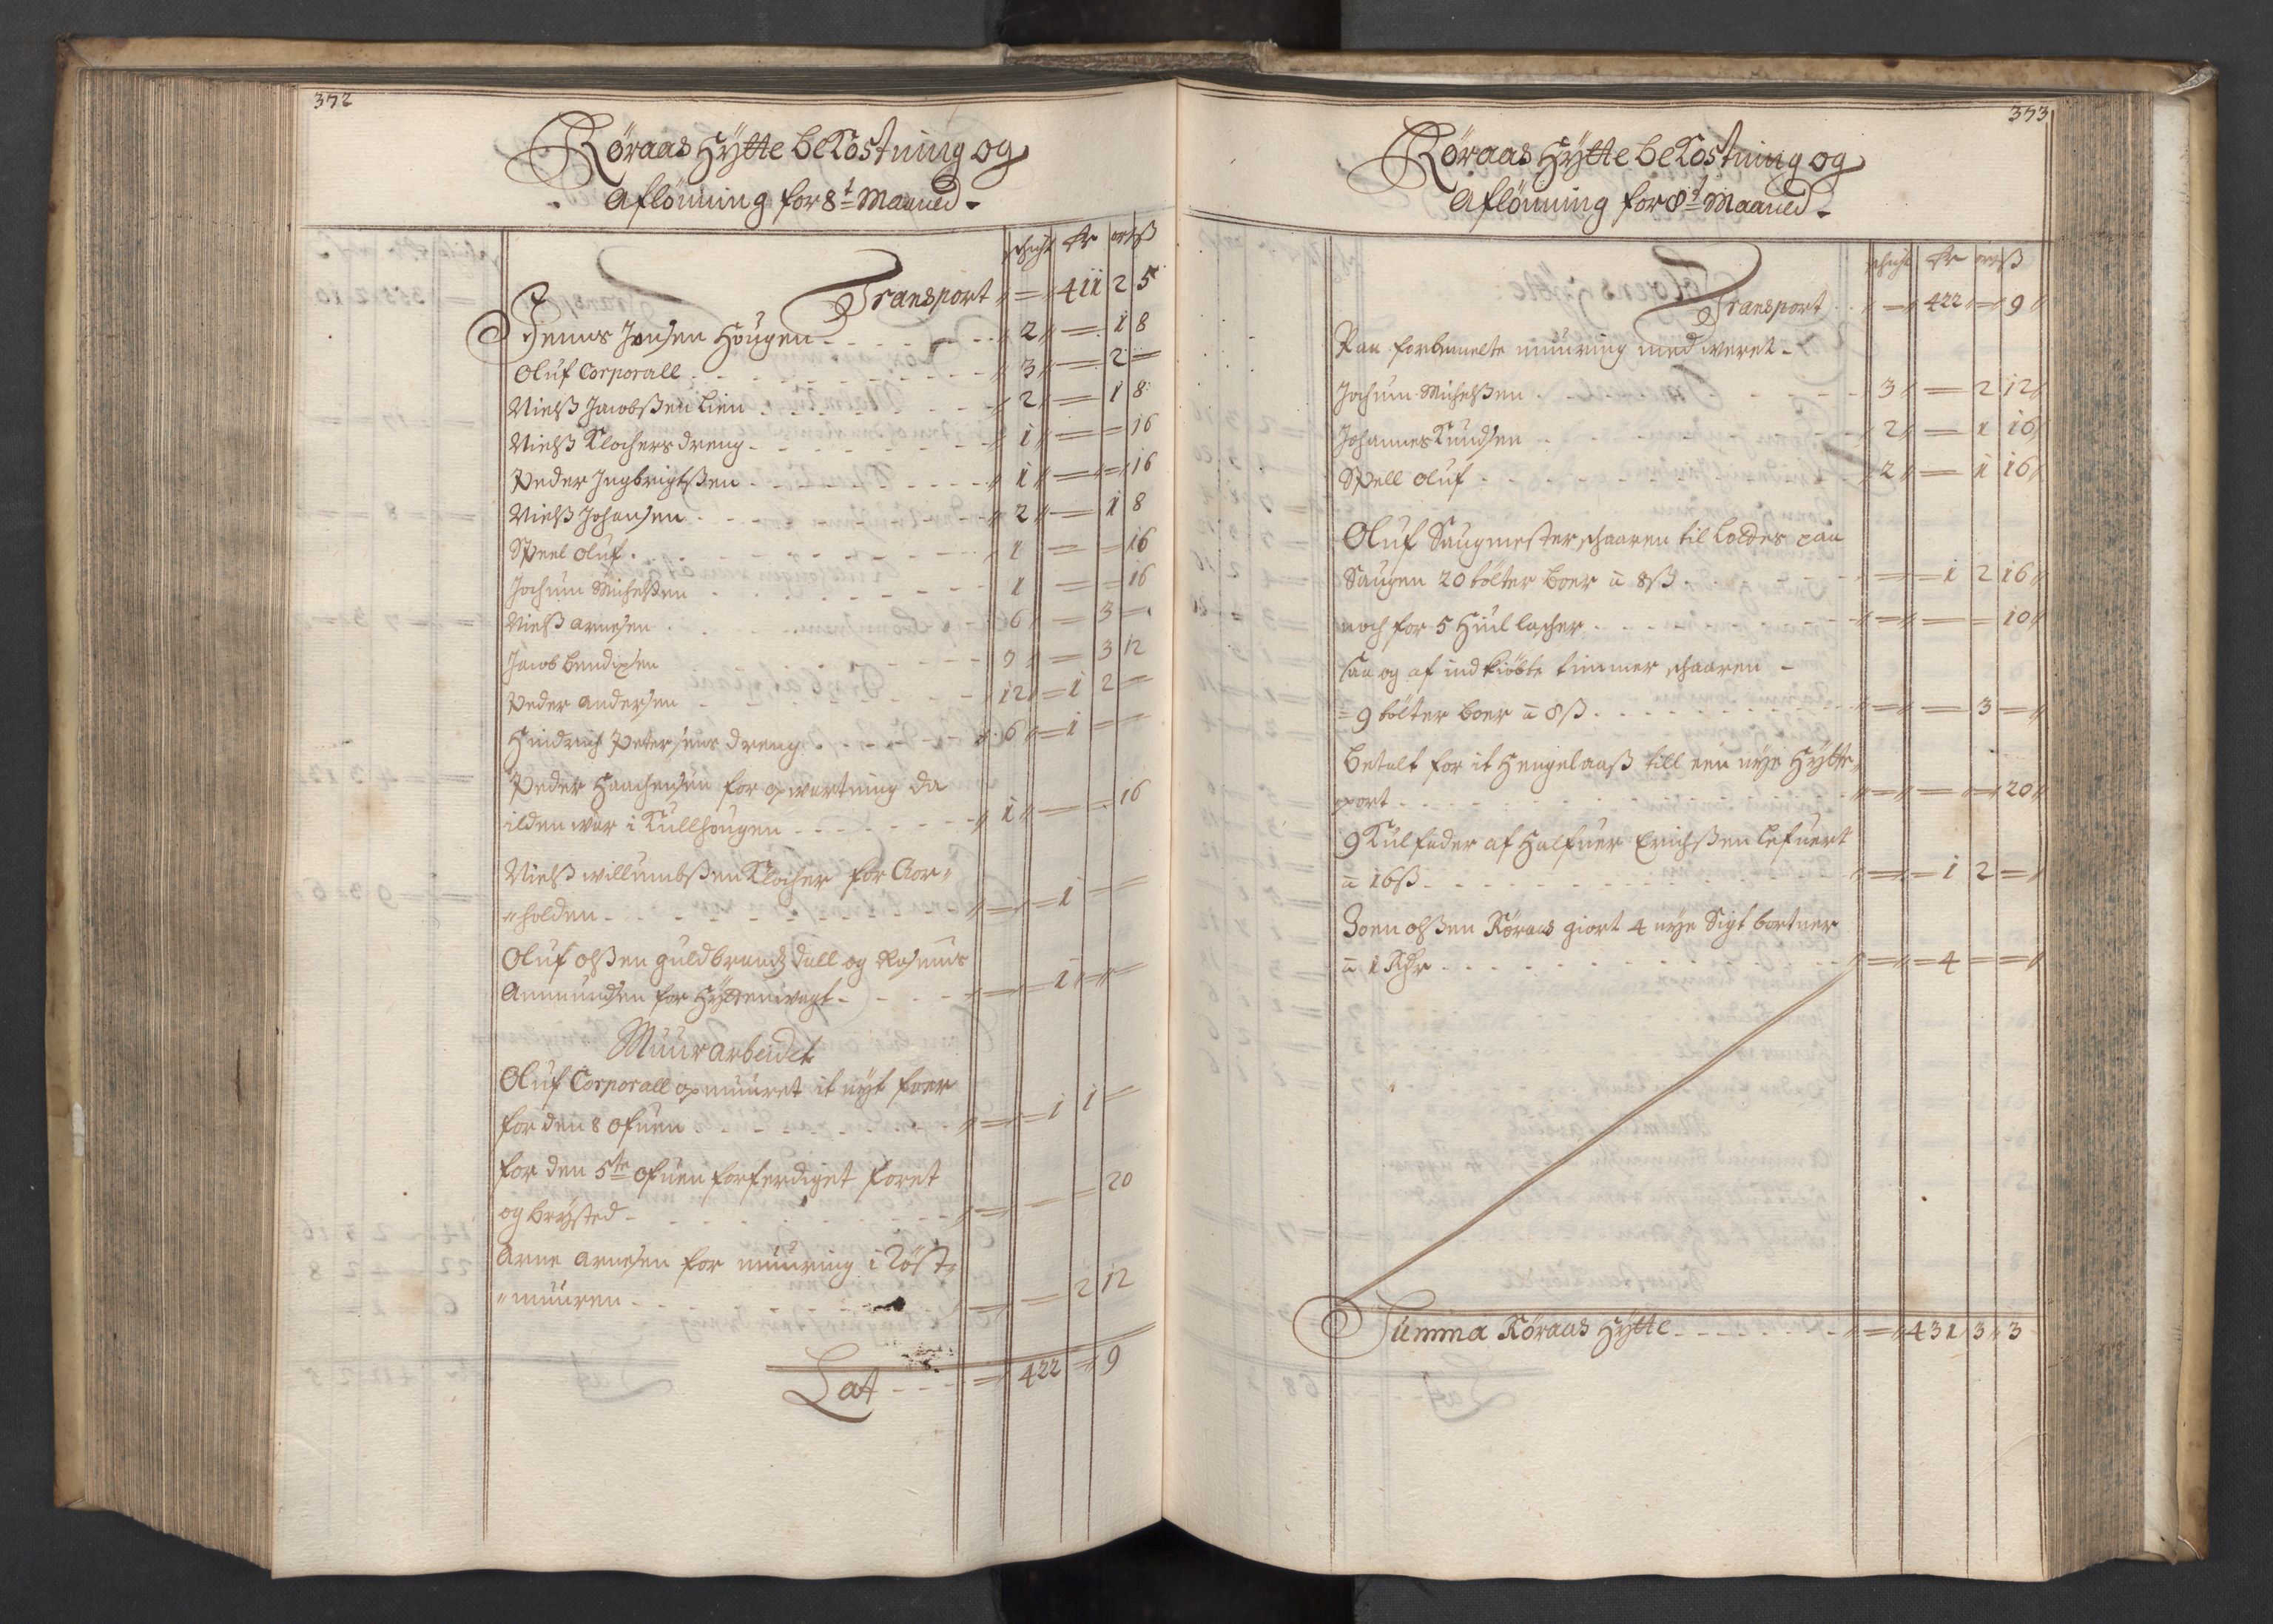 372
Röraas Hÿtte bekostning og
Aflönning for 8t Maaned
schicht dr ort ß
Transport = 411 2 5
Jenns Jensen Hougen 2 = 1 8
Oluf Corporall 3 = 2 =
Nielß Jacobßen Lien 2 = 1 8
Nielß Klochers dreng 1 = = 16
Peder Ingbrigtßen 1 = = 16
Nielß Johansen 2 = 1 8
Speel Oluf 1 = = 16
Jochum Michelßen 1 = = 16
Nielß Arnesen 6 = 3 =
Jacob Bendixsen 7 = 3 12
Peder Andersen 12 = 1 2 =
Hindrich Petersens dreng 6 = 1 = =
Peder Haachensen for opwartning da
ilden war i Kullhougen 1 = = 16
Nielß Willumbßen Klocher for Aor=
=holden = 1 = =
Oluf Olßen Guldbrandsdall og Rasmus
Ammundsen for Hÿttenwagt = 1 = =
Muurarbeidet
Oluf Corporall opmuuret it nÿt foer
for den 8 ofuen = 1 1 =
for den 5te ofuen forferdiget foret
og brÿsted = = = 20
Arne Arnesen for muuring i Röst=
=muuren = = 2 12
Lat = 422 = 9
373
Röraas Hÿtte bekostning og
Aflönning for 8t Maaned
schicht dr ort ß
Transport = 422 = 9
Paa forbemelte muuring med weret
Jochum Michelßen 3 = 2 12
Johannes Kundsen 2 = 1 16
Spell Oluf 2 = 1 16
Oluf Saugmester schaaren til Loedes paa
Saugen 20 tolter boer a 8ß = 1 2 16
noch for 5 Huul lacher = = = 10
saa og af indkiöbte timmer schaaren
= 9 tolter boer a 8ß = = 3 =
Betalt for it Hengelaaß till een nÿe Hÿtte
port = = = 20
9 Kulfader af Halfuer Erichßen lefuert
a 16ß = 1 2 =
Joen Olßen Röraas giort 4 nÿe Sigt bortner
a 1 Rdr = 4 = =
Summa Röraas Hÿtte = 431 3 3